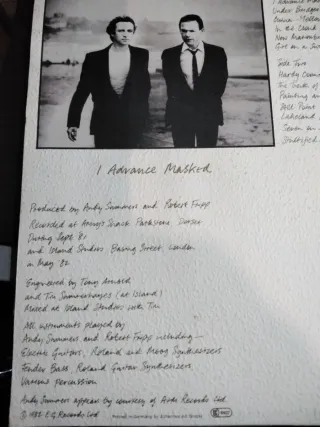 I Advance Masked
Under Bridges
In the Cloud
New Marimba
Girl on a Swing
Side Two
Hardy Country
The Truth of
Painting and
Still Point
Lakeland
Seven on
Stultified
I Advance Masked
Produced by Andy Summers and Robert Fripp
Recorded at Arny's Shack Parkstone Dorset
During Sept '81
and Island Studios Basing Street, London
in May '82
Engineered by Tony Arnold
and Tim Summerhayes (at Island)
Mixed at Island Studios with Tim
All instruments played by
Andy Summers and Robert Fripp including —
Electric Guitars, Roland and Moog Synthesizers
Fender Bass, Roland Guitar Synthesizers
Various percussion
Andy Summers appears by courtesy of A&M Records Ltd
© 1982 E.G. Records Ltd